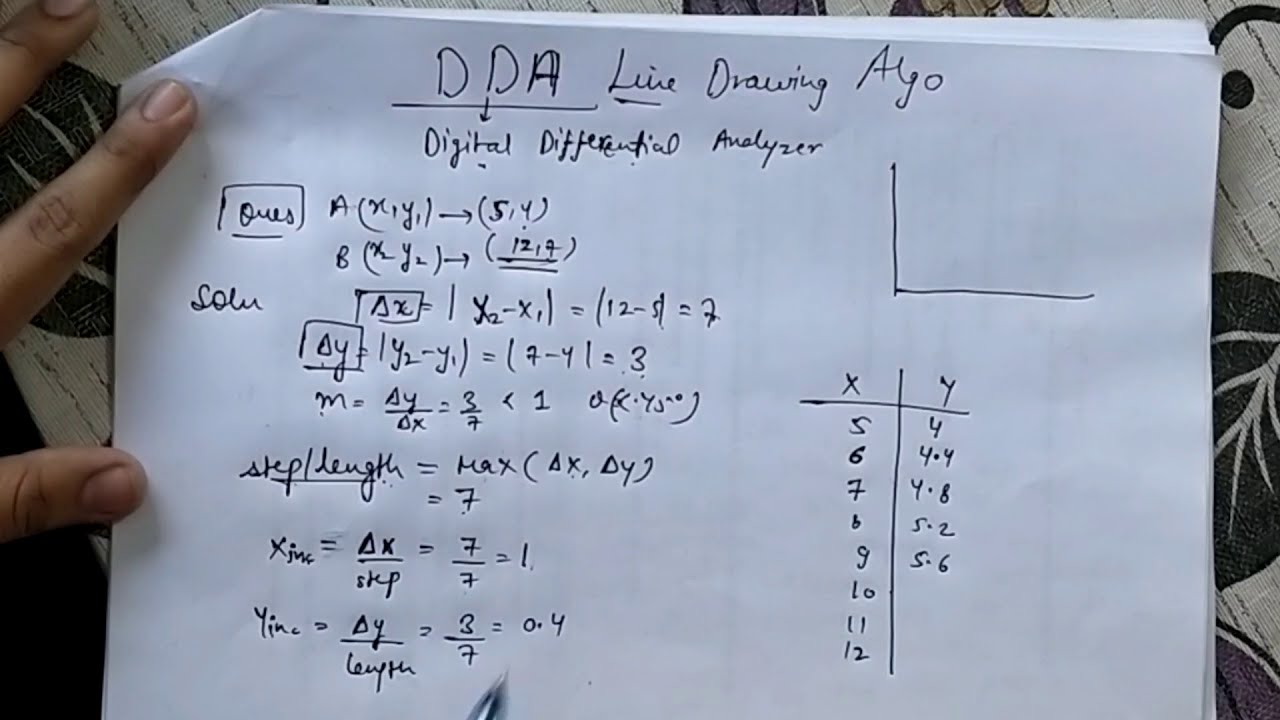 DDA Line Drawing Algo
Digital Differential Analyzer
Ques A(x,y₁) → (5,4)
B(x₂ y₂) → (12,7)
Solu Δx = |x₂-x₁| = |12-5| = 7
Δy = |y₂-y₁| = |7-4| = 3
m = Δy/Δx = 3/7 < 1
step/length = Max(Δx, Δy)
= 7
Xinc = Δx/step = 7/7 = 1
Yinc = Δy/length = 3/7 = 0.4
X Y
5 4
6 4.4
7 4.8
8 5.2
9 5.6
10
11
12